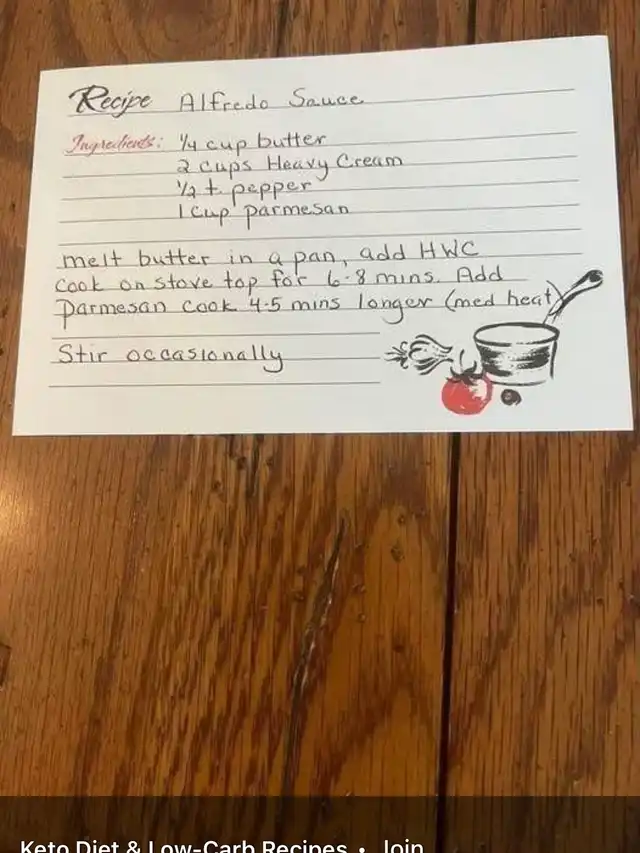 Recipe Alfredo Sauce
Ingredients: 1/4 cup butter
2 cups Heavy Cream
1/2 t pepper
1 cup parmesan
melt butter in a pan, add HWC
Cook on stove top for 6-8 mins. Add
Parmesan cook 4-5 mins longer (med heat)
Stir occasionally
Keto Diet & Low-Carb Recipes • Join